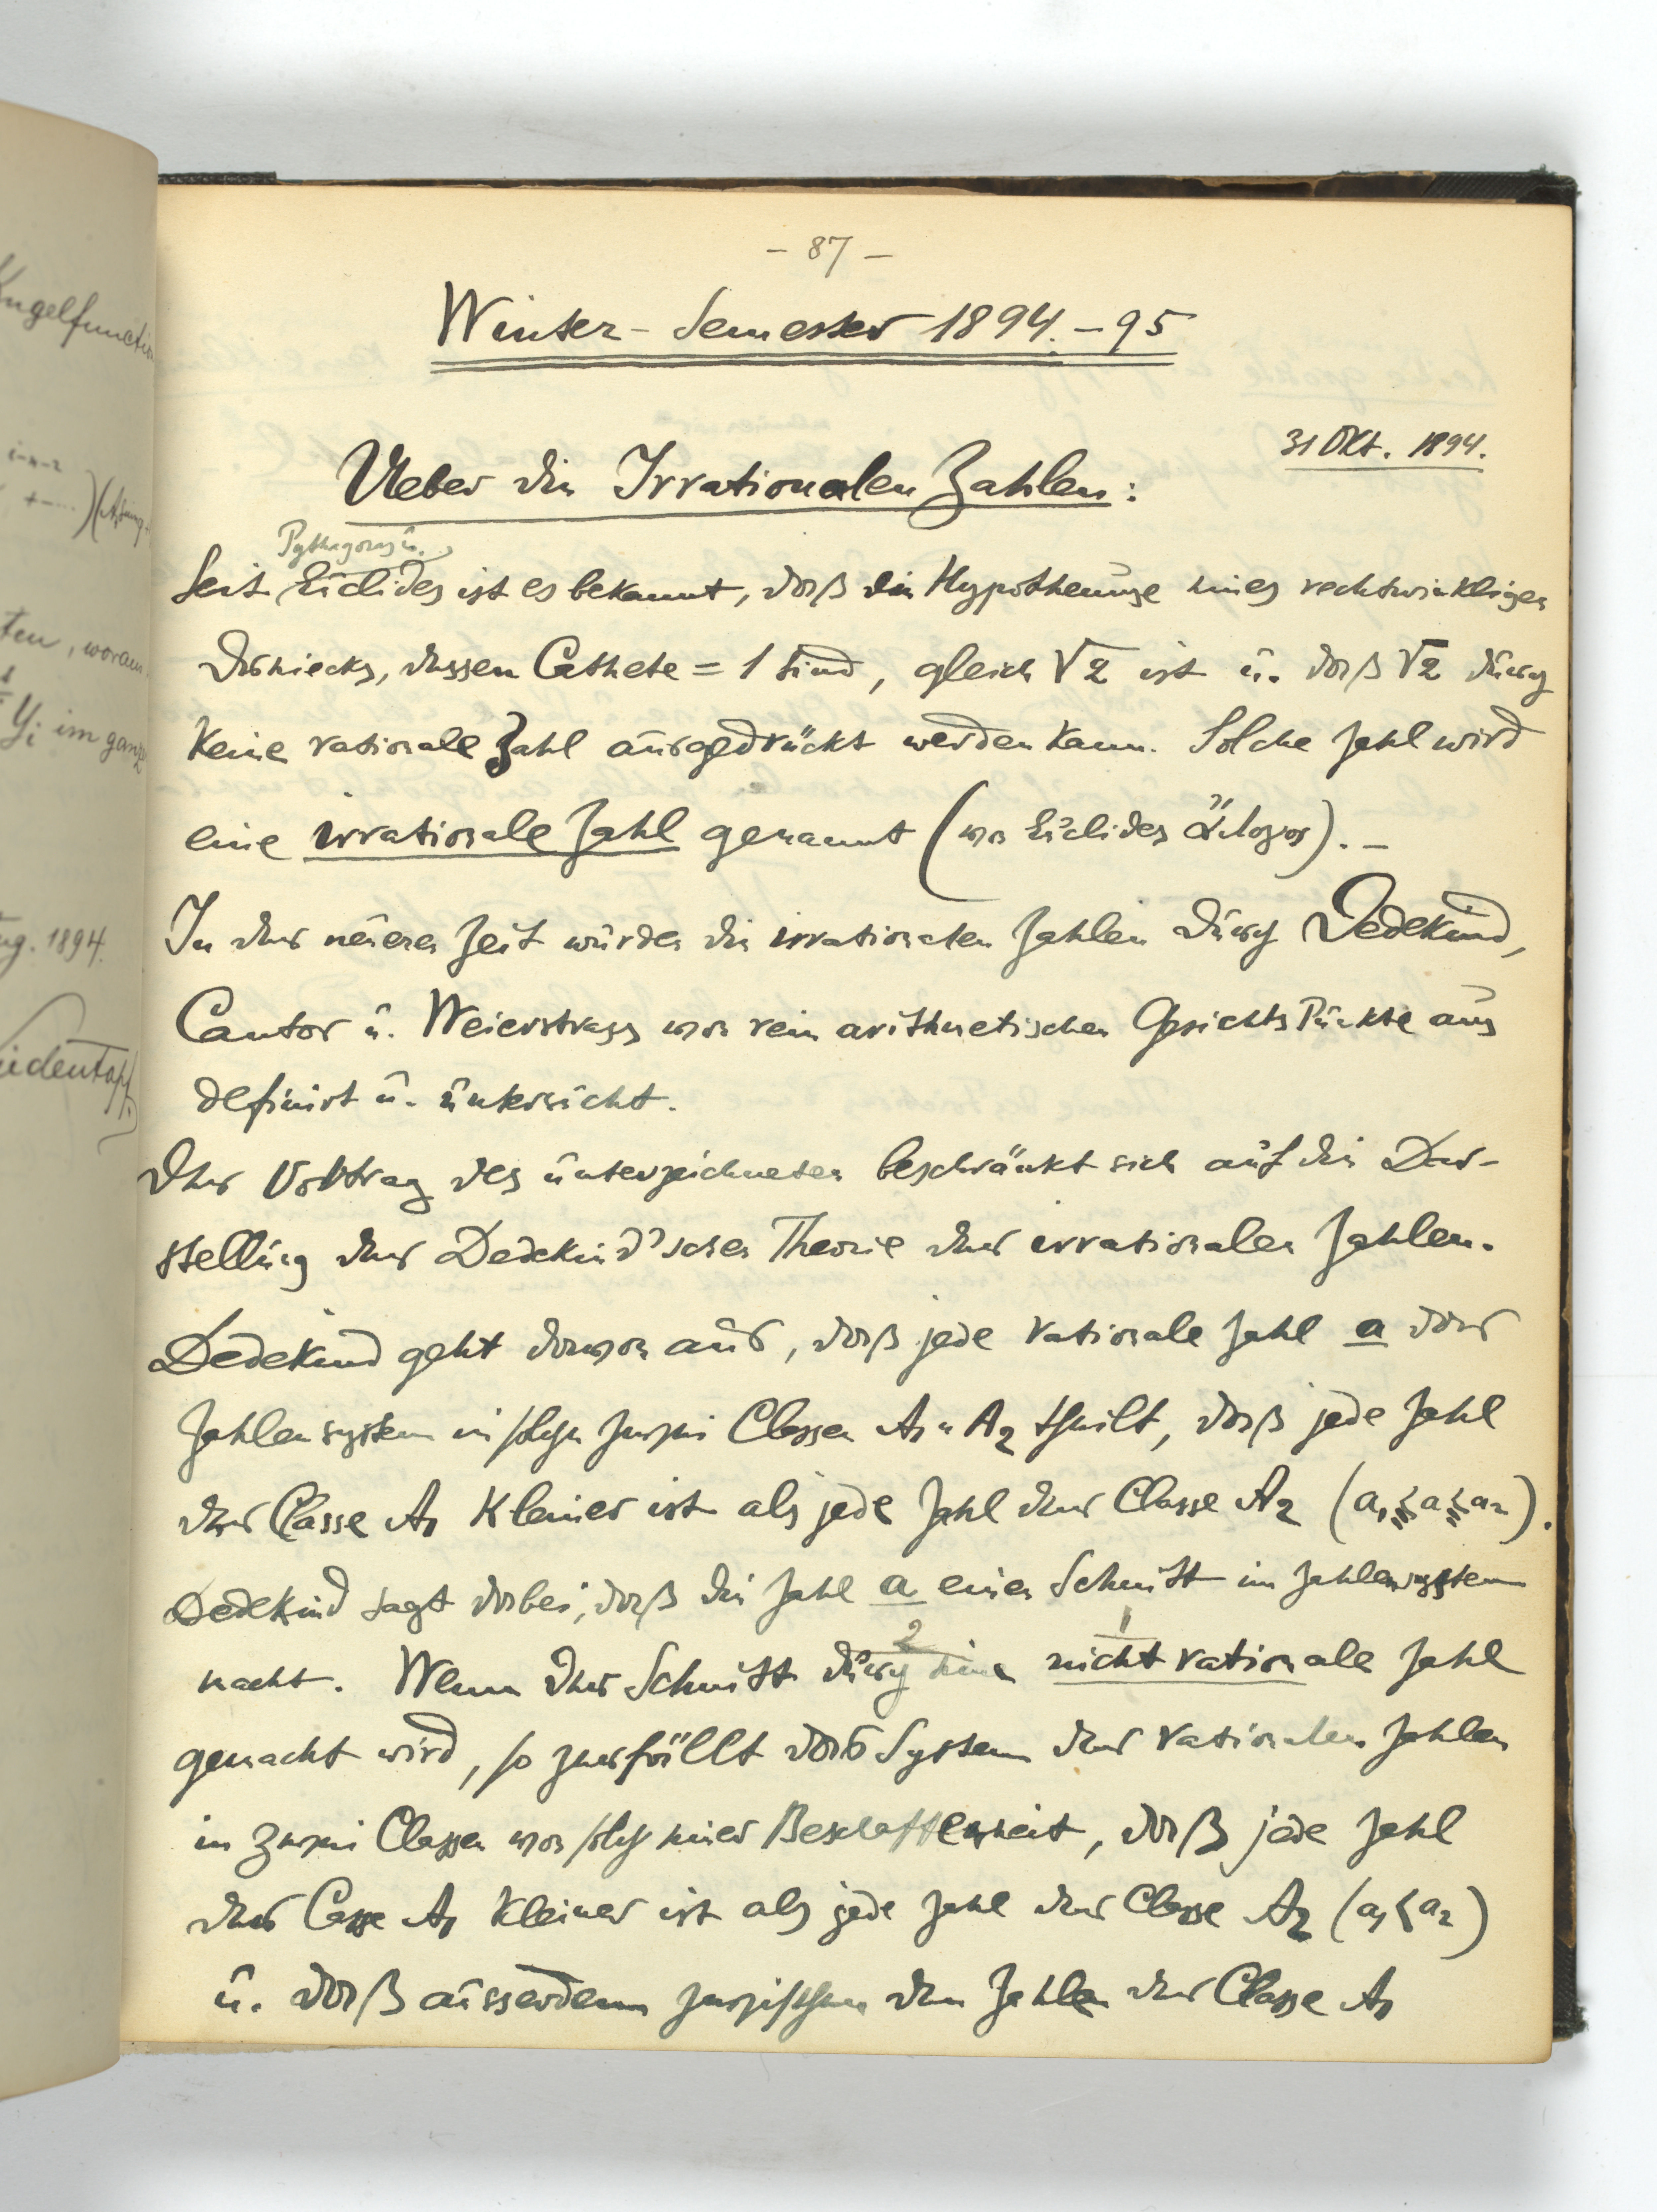 - 87 -
Winter-Semester 1894.-95
31 Okt. 1894.
Ueber die Irrationalen Zahlen:
Pythagoras u.
Seit Euclides ist es bekannt, daß die Hypothenuse eines rechtwinkligen
Dreiecks, dessen Cathete = 1 sind, gleich √2 ist u. daß √2 durch
keine rationale Zahl ausgedrückt werden kann. Solche Zahl wird
eine irrationale Zahl genannt (von Euclides ἄλογος). -
In der neueren Zeit wurden die irrationalen Zahlen durch Dedekind,
Cantor u. Weierstrass von rein arithmetischen Gesichtspunkte aus
definirt u. untersucht.
Der Vortrag des unterzeichneten beschränkt sich auf die Dar-
stellung der Dedekind'schen Theorie der irrationalen Zahlen.
Dedekind geht davon aus, daß jede rationale Zahl a das
Zahlensystem in solche zwei Classen A₁ u A₂ theilt, daß jede Zahl
der Classe A₁ kleiner ist als jede Zahl der Classe A₂ (a₁ ≤ a ≤ a₂).
Dedekind sagt dabei, daß die Zahl a einen Schnitt im Zahlensystem
macht. Wenn der Schnitt durch eine nicht rationale Zahl
2 1
gemacht wird, so zerfällt das System der rationalen Zahlen
in zwei Classen von solch einer Beschaffenheit, daß jede Zahl
der Casse A₁ kleiner ist als jede Zahl der Classe A₂ (a₁ < a₂)
u. daß ausserdem zwischen den Zahlen der Classe A₁
Kugelfunctio
ten, woraus
Yᵢ im ganz
ug. 1894.